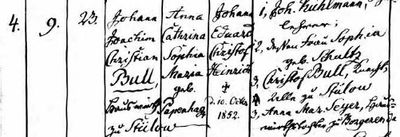 4. 9. 23.
Johann
Joachim
Christian
Bull,
Hauswirth
zu Stülow
Anna
Cathrina
Sophia
Maria
geb.
Papenhagen
Johann
Eduard
Christof
Heinrich
†
d. 10. Octbr
1852.
1, Joh. Kuhlmann,
Lehrer;
2, dessen Frau Sophia
geb. Schultz
3, Christof Bull,
zu Stülow
3, Anna Mar. Beyer,
zu